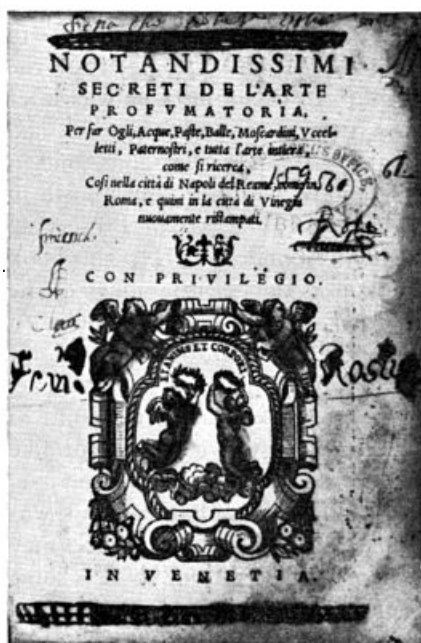 NOTANDISSIMI
SECRETI DE L'ARTE
PROFVMATORIA,
Per far Ogli, Acque, Paste, Balle, Moscardini, Vccel-
letti, Paternostri, e tutta l'arte intiera,
come si ricerca,
Cosi nella città di Napoli del Reame, come in
Roma, e quiui in la città di Vinegia
nuouamente ristampati.
CON PRIVILEGIO.
ET ANIMIS ET CORPORI
IN VENETIA.